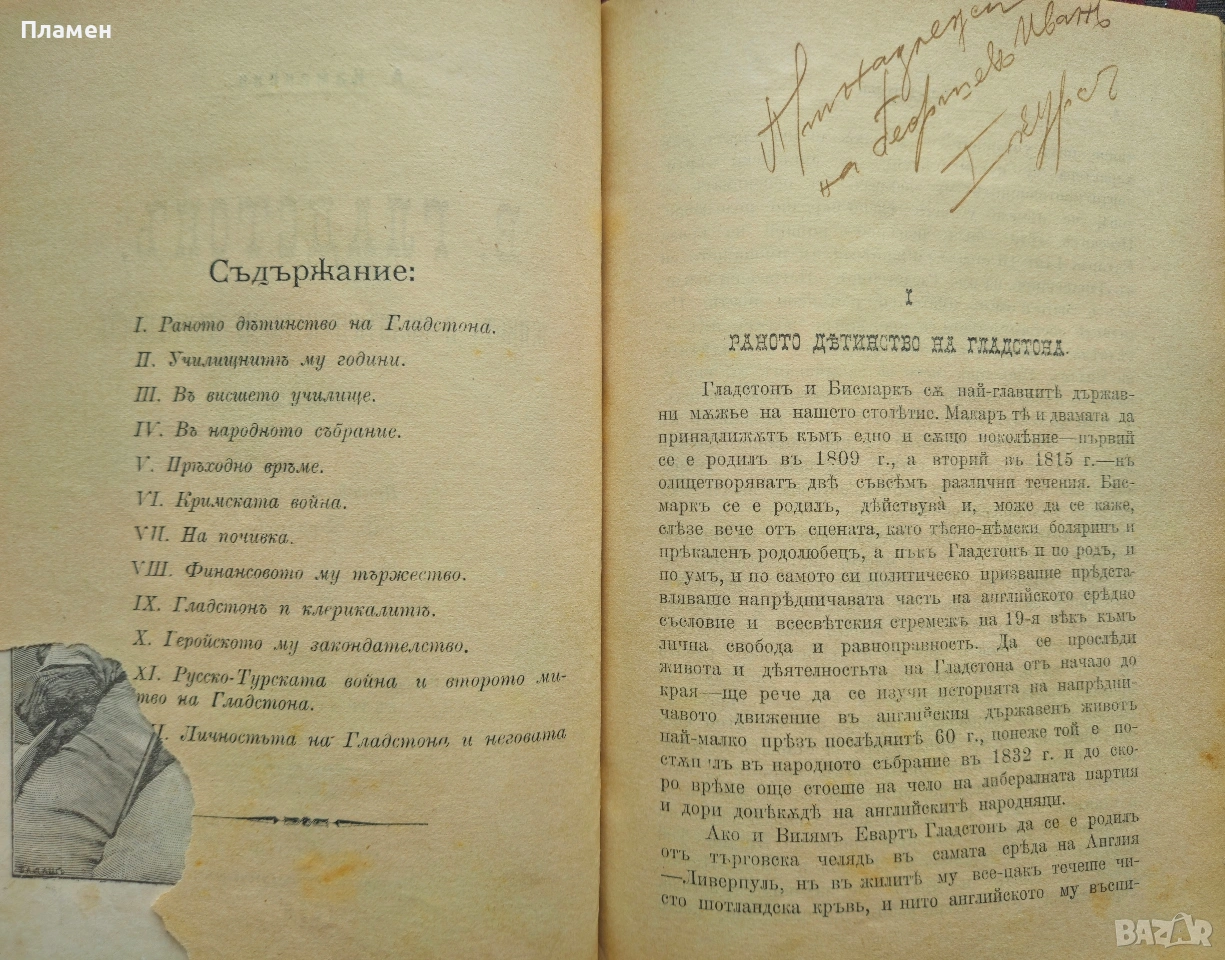 Пламен
Съдържание:
I. Раното дѣтинство на Гладстона.
II. Училищнитѣ му години.
III. Въ висшето училище.
IV. Въ народното събрание.
V. Прѣходно врѣме.
VI. Кримската война.
VII. На почивка.
VIII. Финансовото му тържество.
IX. Гладстонъ и клерикалитѣ.
X. Геройското му закондателство.
XI. Русско-Турската война и второто ми-
тво на Гладстона.
II. Личностьта на Гладстона и неговата
Принадлежи
на Георгиевъ Иванъ
I курсъ
I
РАНОТО ДѢТИНСТВО НА ГЛАДСТОНА.
Гладстонъ и Бисмаркъ сѫ най-главнитѣ държав-
ни мѫжье на нашето столѣтие. Макаръ тѣ и двамата да
принадлижѫтъ къмъ едно и сѫщо поколѣние—първий
се е родилъ въ 1809 г., а вторий въ 1815 г.—нъ
олицетворяватъ двѣ съвсѣмъ различни течения. Бис-
маркъ се е родилъ, дѣйствува и, може да се каже,
слѣзе вече отъ сцената, като тѣсно-нѣмски боляринъ и
прѣкаленъ родолюбецъ, а пъкъ Гладстонъ и по родъ, и
по умъ, и по самото си политическо призвание прѣдста-
вляваше напрѣдничавата часть на английското срѣдно
съсловие и всесвѣтския стремежъ на 19-я вѣкъ къмъ
лична свобода и равноправность. Да се прослѣди
живота и дѣятелностьта на Гладстона отъ начало до
края—ще рече да се изучи историята на напрѣдни-
чавото движение въ английския държавенъ животъ
най-малко прѣзъ послѣднитѣ 60 г., понеже той е по-
стѫпилъ въ народното събрание въ 1832 г. и до ско-
ро врѣме още стоеше на чело на либералната партия
и дори допѣкѫдѣ на английскитѣ народняци.
Ако и Вилямъ Евартъ Гладстонъ да се е родилъ
отъ търговска челядь въ самата срѣда на Англия
—Ливерпуль, нъ въ жилитѣ му все-пакъ течеше чи-
сто шотландска кръвь, и нито английското му въспи-
BAZAR